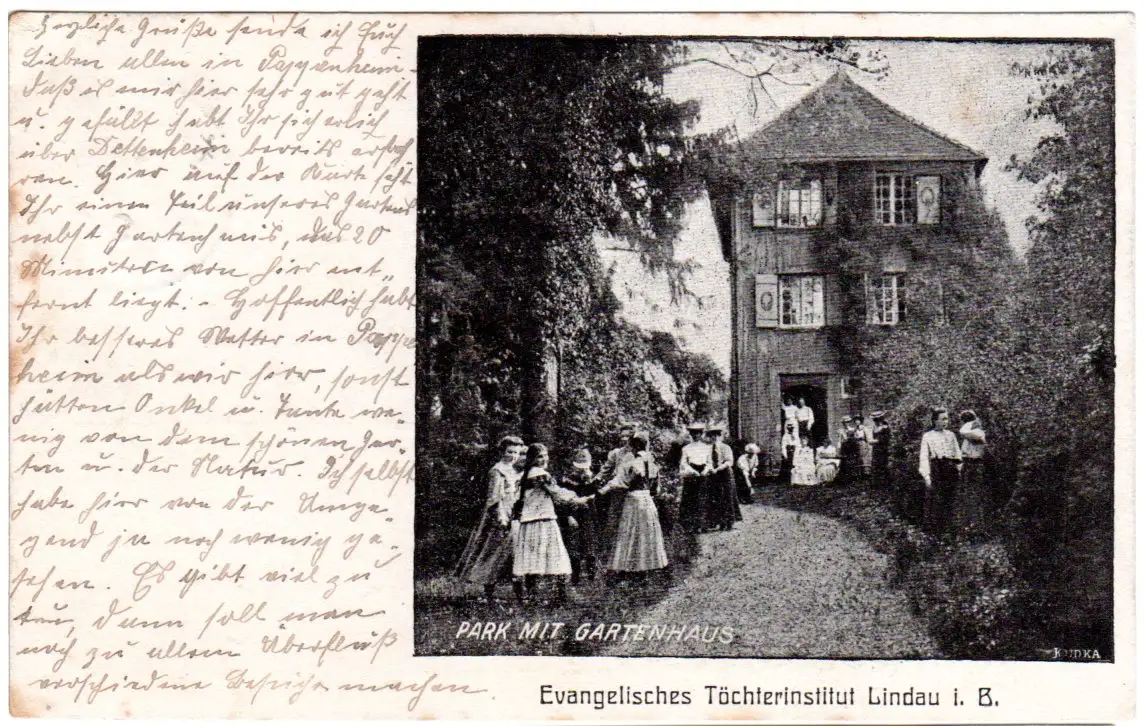 Herzliche Grüße sende ich Euch
Lieben allen in Pappenheim.
Daß es mir hier sehr gut geht
u. gefällt habt Ihr sicherlich
über Dettenheim bereits erfah
ren. Hier auf der Karte seht
Ihr einen Teil unseres Gartens
nebst Gartenhaus, das 20
Minuten von hier ent„
fernt liegt. - Hoffentlich habt
Ihr besseres Wetter in Pappen
heim als wir hier, sonst
hätten Onkel u. Tante we„
nig von dem schönen Gar„
ten u. der Natur. Ich selbst
habe hier von der Umge„
gend ja noch wenig ge„
sehen. Es gibt viel zu
tun, dann soll man
noch zu allem Überfluß
verschiedene Besuche machen.
PARK MIT GARTENHAUS
KUDKA
Evangelisches Töchterinstitut Lindau i. B.